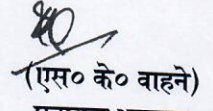 (एस० के० वाहने)